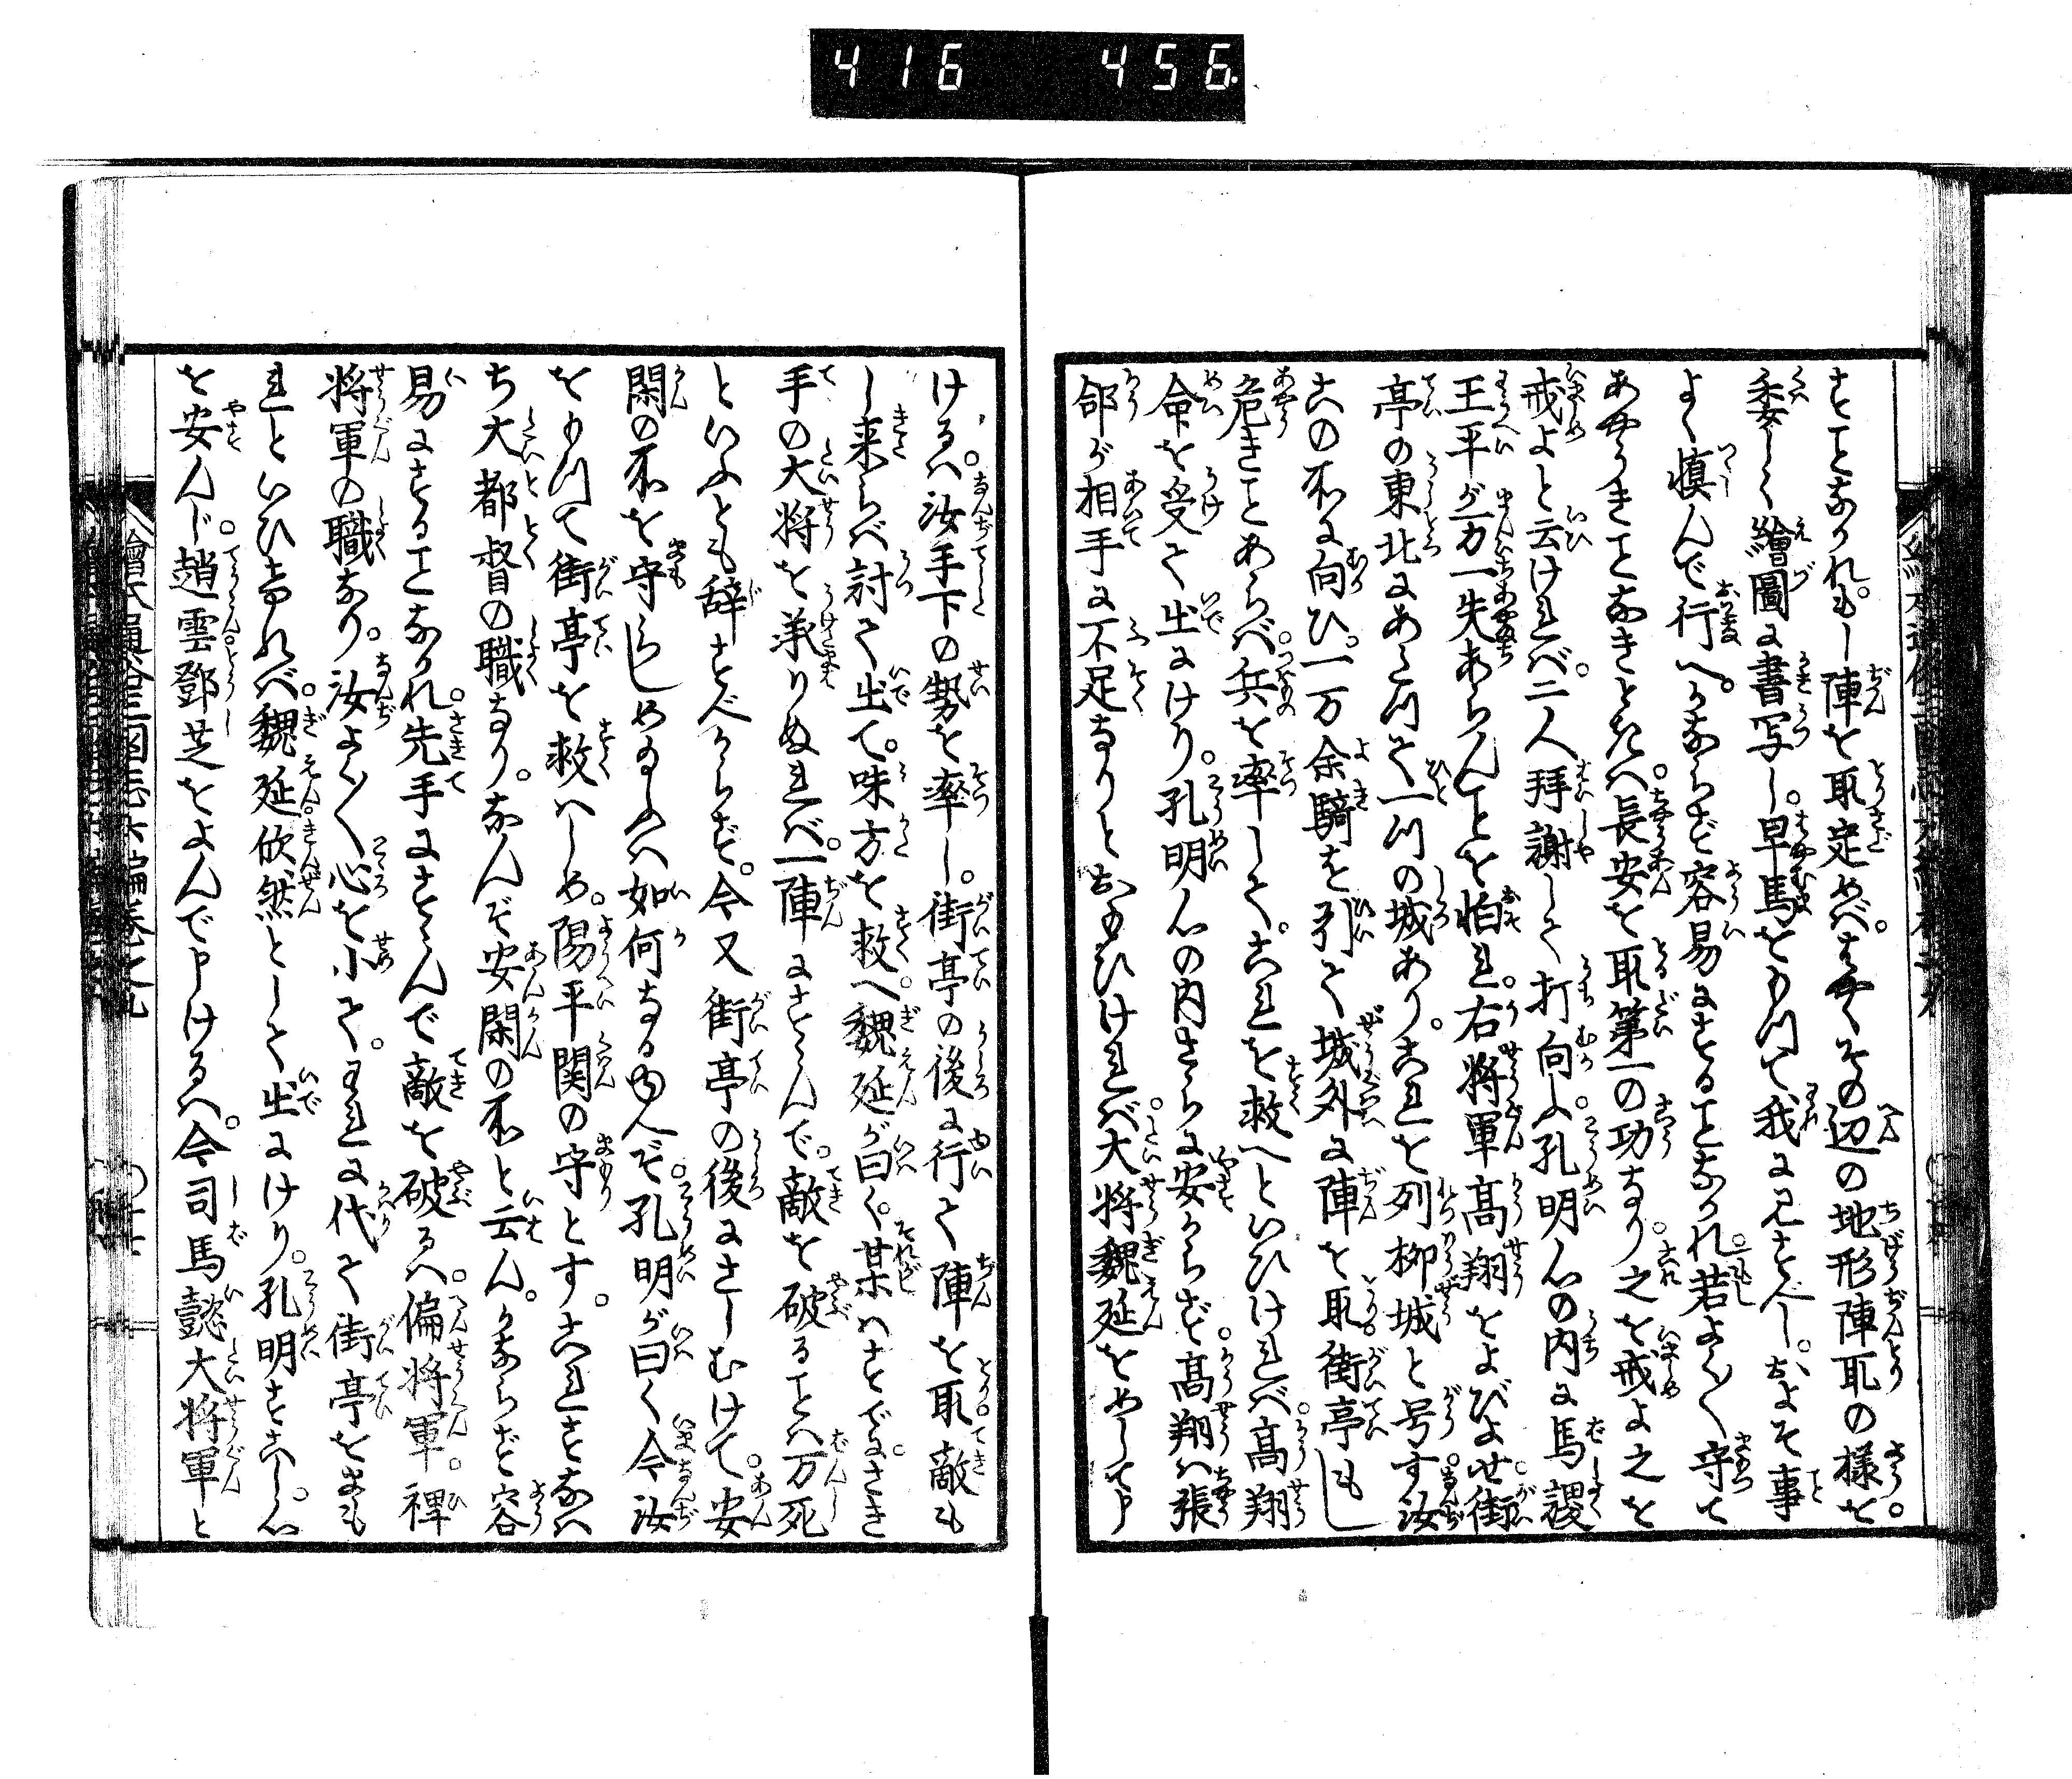 416 456
すことなかれ。もし陣を取定めば。はやくその辺の地形陣取の様を。
委しく繪圖に書写し。早馬をもつて我に見すべし。およそ事
よく慎んで行へ。かならず容易にすることなかれ。若よく〱守て
あやうきことなきときは。長安を取第一の功なり。之を戒よ之を
戒よと云ければ。二人拜謝して打向ふ。孔明心の内に馬謖
王平が万一失あらんことを怕れ。右将軍高翔をよびよせ。街
亭の東北にあたつて一つの城あり。これを列柳城と号す。汝
この所に向ひ。一万余騎を引て城外に陣を取。街亭もし
危きことあらば。兵を率して。これを救へといひければ。高翔
命を受て出にけり。孔明心の内さらに安からず。高翔は張
郃が相手に不足なりとおもひければ。大将魏延をめして申
けるは。汝手下の勢を率し。街亭の後に行て陣を取。敵も
し来らば討て出て。味方を救へ。魏延が曰く。某はすでにさき
手の大将を承りぬれば。一陣にすゝんで。敵を破ることは万死
といふとも辞すべからず。今又街亭の後にさしむけて。安
閑の所を守らしめ給ふは如何なるゆへぞ。孔明が曰く今汝
をもつて街亭を救はしめ。陽平関の守とす。これすなは
ち大都督の職なり。なんぞ安閑の所と云ん。かならず容
易にすることなかれ。先手にすゝんで敵を破るは。偏将軍。裨
将軍の職なり。汝よく〱心を小て。われに代て街亭をまも
れといひければ。魏延欣然として出にけり。孔明すこし。心
を安んじ。趙雲鄧芝をよんで申けるは。今司馬懿大将軍と